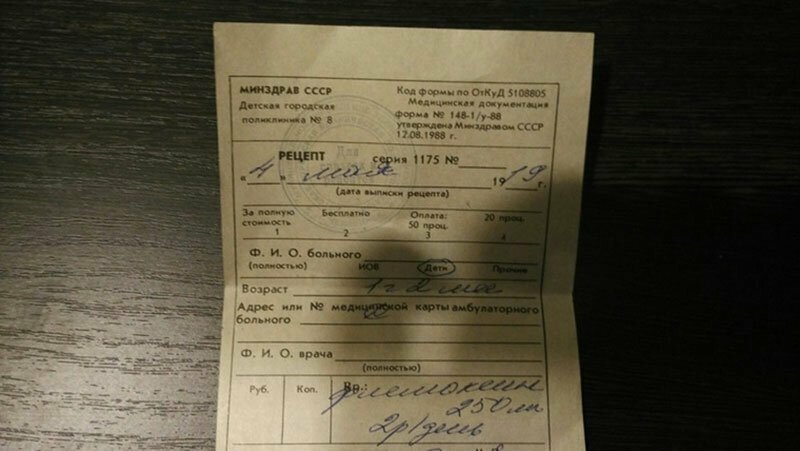 МИНЗДРАВ СССР
Детская городская
поликлиника № 8
Код формы по ОтКуД 5108805
Медицинская документация
форма № 148-1/у-88
утверждена Минздравом СССР
12.08.1988 г.
РЕЦЕПТ серия 1175 №
Для
«4» мая 1919 г.
(дата выписки рецепта)
За полную стоимость 1
Бесплатно 2
Оплата: 50 проц. 3
20 проц. 4
Ф. И. О. больного
(полностью) ИОВ Дети Прочие
Возраст 1 г 2 мес
Адрес или № медицинской карты амбулаторного
больного
Ф. И. О. врача
(полностью)
Руб. Коп. Rp.:
флемоксин
250 мг
2р/день